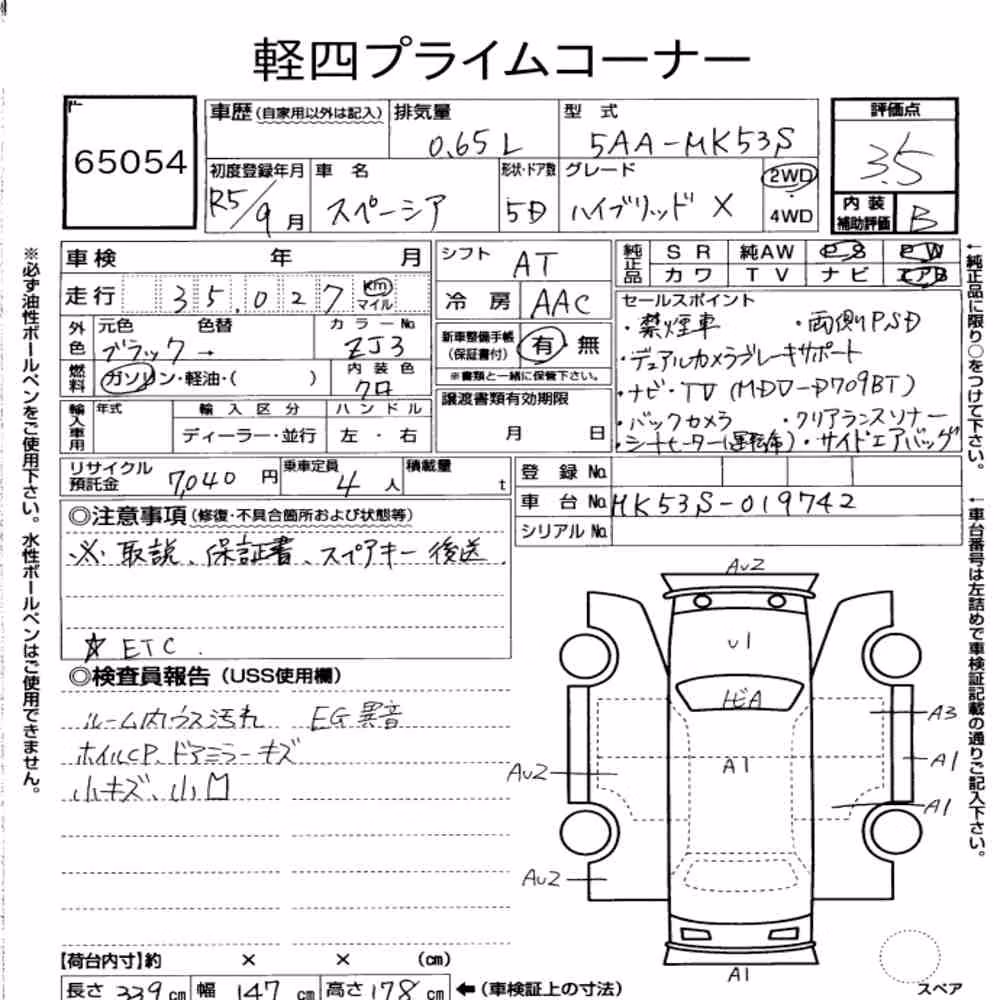 軽四プライムコーナー
65054
車歴 (自家用以外は記入) 排気量 0.65 L 型式 5AA-MK53S
初度登録年月 R5/9月 車名 スペーシア 形状・ドア数 5D グレード ハイブリッド X 2WD 4WD
評価点 3.5
内装補助評価 B
車検 年 月
走行 35,027 km マイル
外色 元色 ブラック → 色替 カラーNo. ZJ3
燃料 ガソリン・軽油・( ) 内装色 クロ
輸入車用 年式 輸入区分 ディーラー・並行 ハンドル 左・右
シフト AT
冷房 AAC
新車整備手帳 (保証書付) 有 無
※書類と一緒に保管下さい。
譲渡書類有効期限
月 日
純正品 SR 純AW PS PW
カワ TV ナビ エアB
セールスポイント
・禁煙車 ・両側PSD
・デュアルカメラブレーキサポート
・ナビ・TV (MDV-D709BT)
・バックカメラ ・クリアランスソナー
・シートヒーター(運転席)・サイドエアバッグ
リサイクル預託金 7,040 円 乗車定員 4 人 積載量 t
登録No.
車台No. MK53S-019742
シリアルNo.
◎注意事項 (修復・不具合箇所および状態等)
※ 取説、保証書、スペアキー後送
☆ ETC
◎検査員報告 (USS使用欄)
ルーム内ウス汚れ EG異音
ホイルCP、ドアミラーキズ
小キズ、小凹
AU2
U1
トビA
A3
A1
A1
AU2
A1
AU2
A1
スペア
【荷台内寸】約 × × (cm)
長さ 339 cm 幅 147 cm 高さ 178 cm ←(車検証上の寸法)
※必ず油性ボールペンをご使用下さい。水性ボールペンはご使用できません。
←純正品に限り○をつけて下さい。
←車台番号は左詰めで車検証記載の通りご記入下さい。